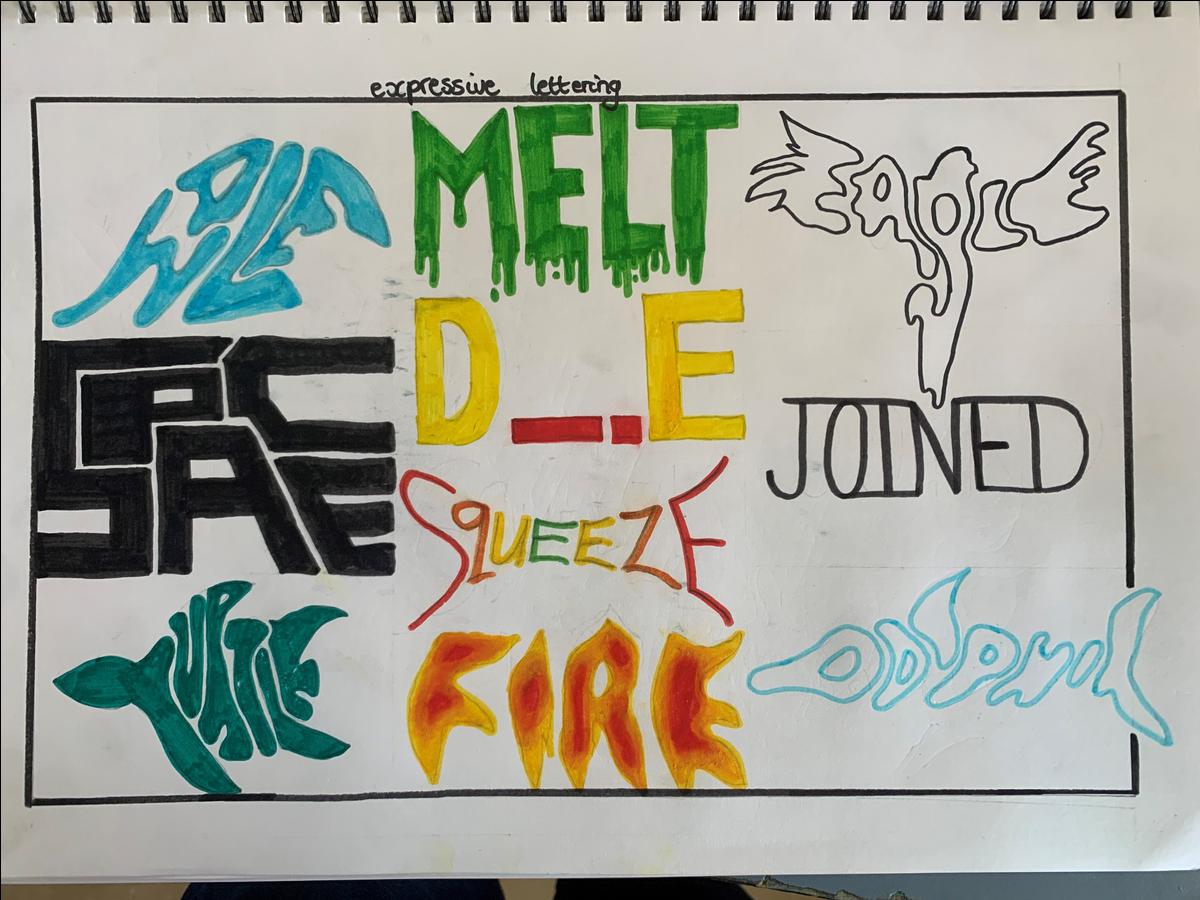 expressive lettering
MELT
EAGLE
D__E
SPACE
JOINED
SQUEEZE
TURTLE
FIRE
DOLPHIN